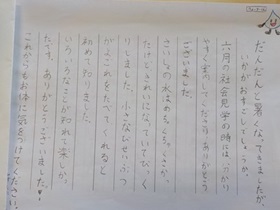 だんだんと暑くなってきましたが、
いかがおすごしでしょうか。
六月の社会見学の時には、分かり
やすく教してくださりありがとう
ございました。
さいしょの水はめちゃくちゃくさかっ
たけど、きれいになっていてびっく
りしました。小さなびせいぶつ
がよごれをたべてくれると
初めて知りました。
いろいろなことが知れて楽しかっ
たです。ありがとうございました。
これからもお体に気をつけてください。